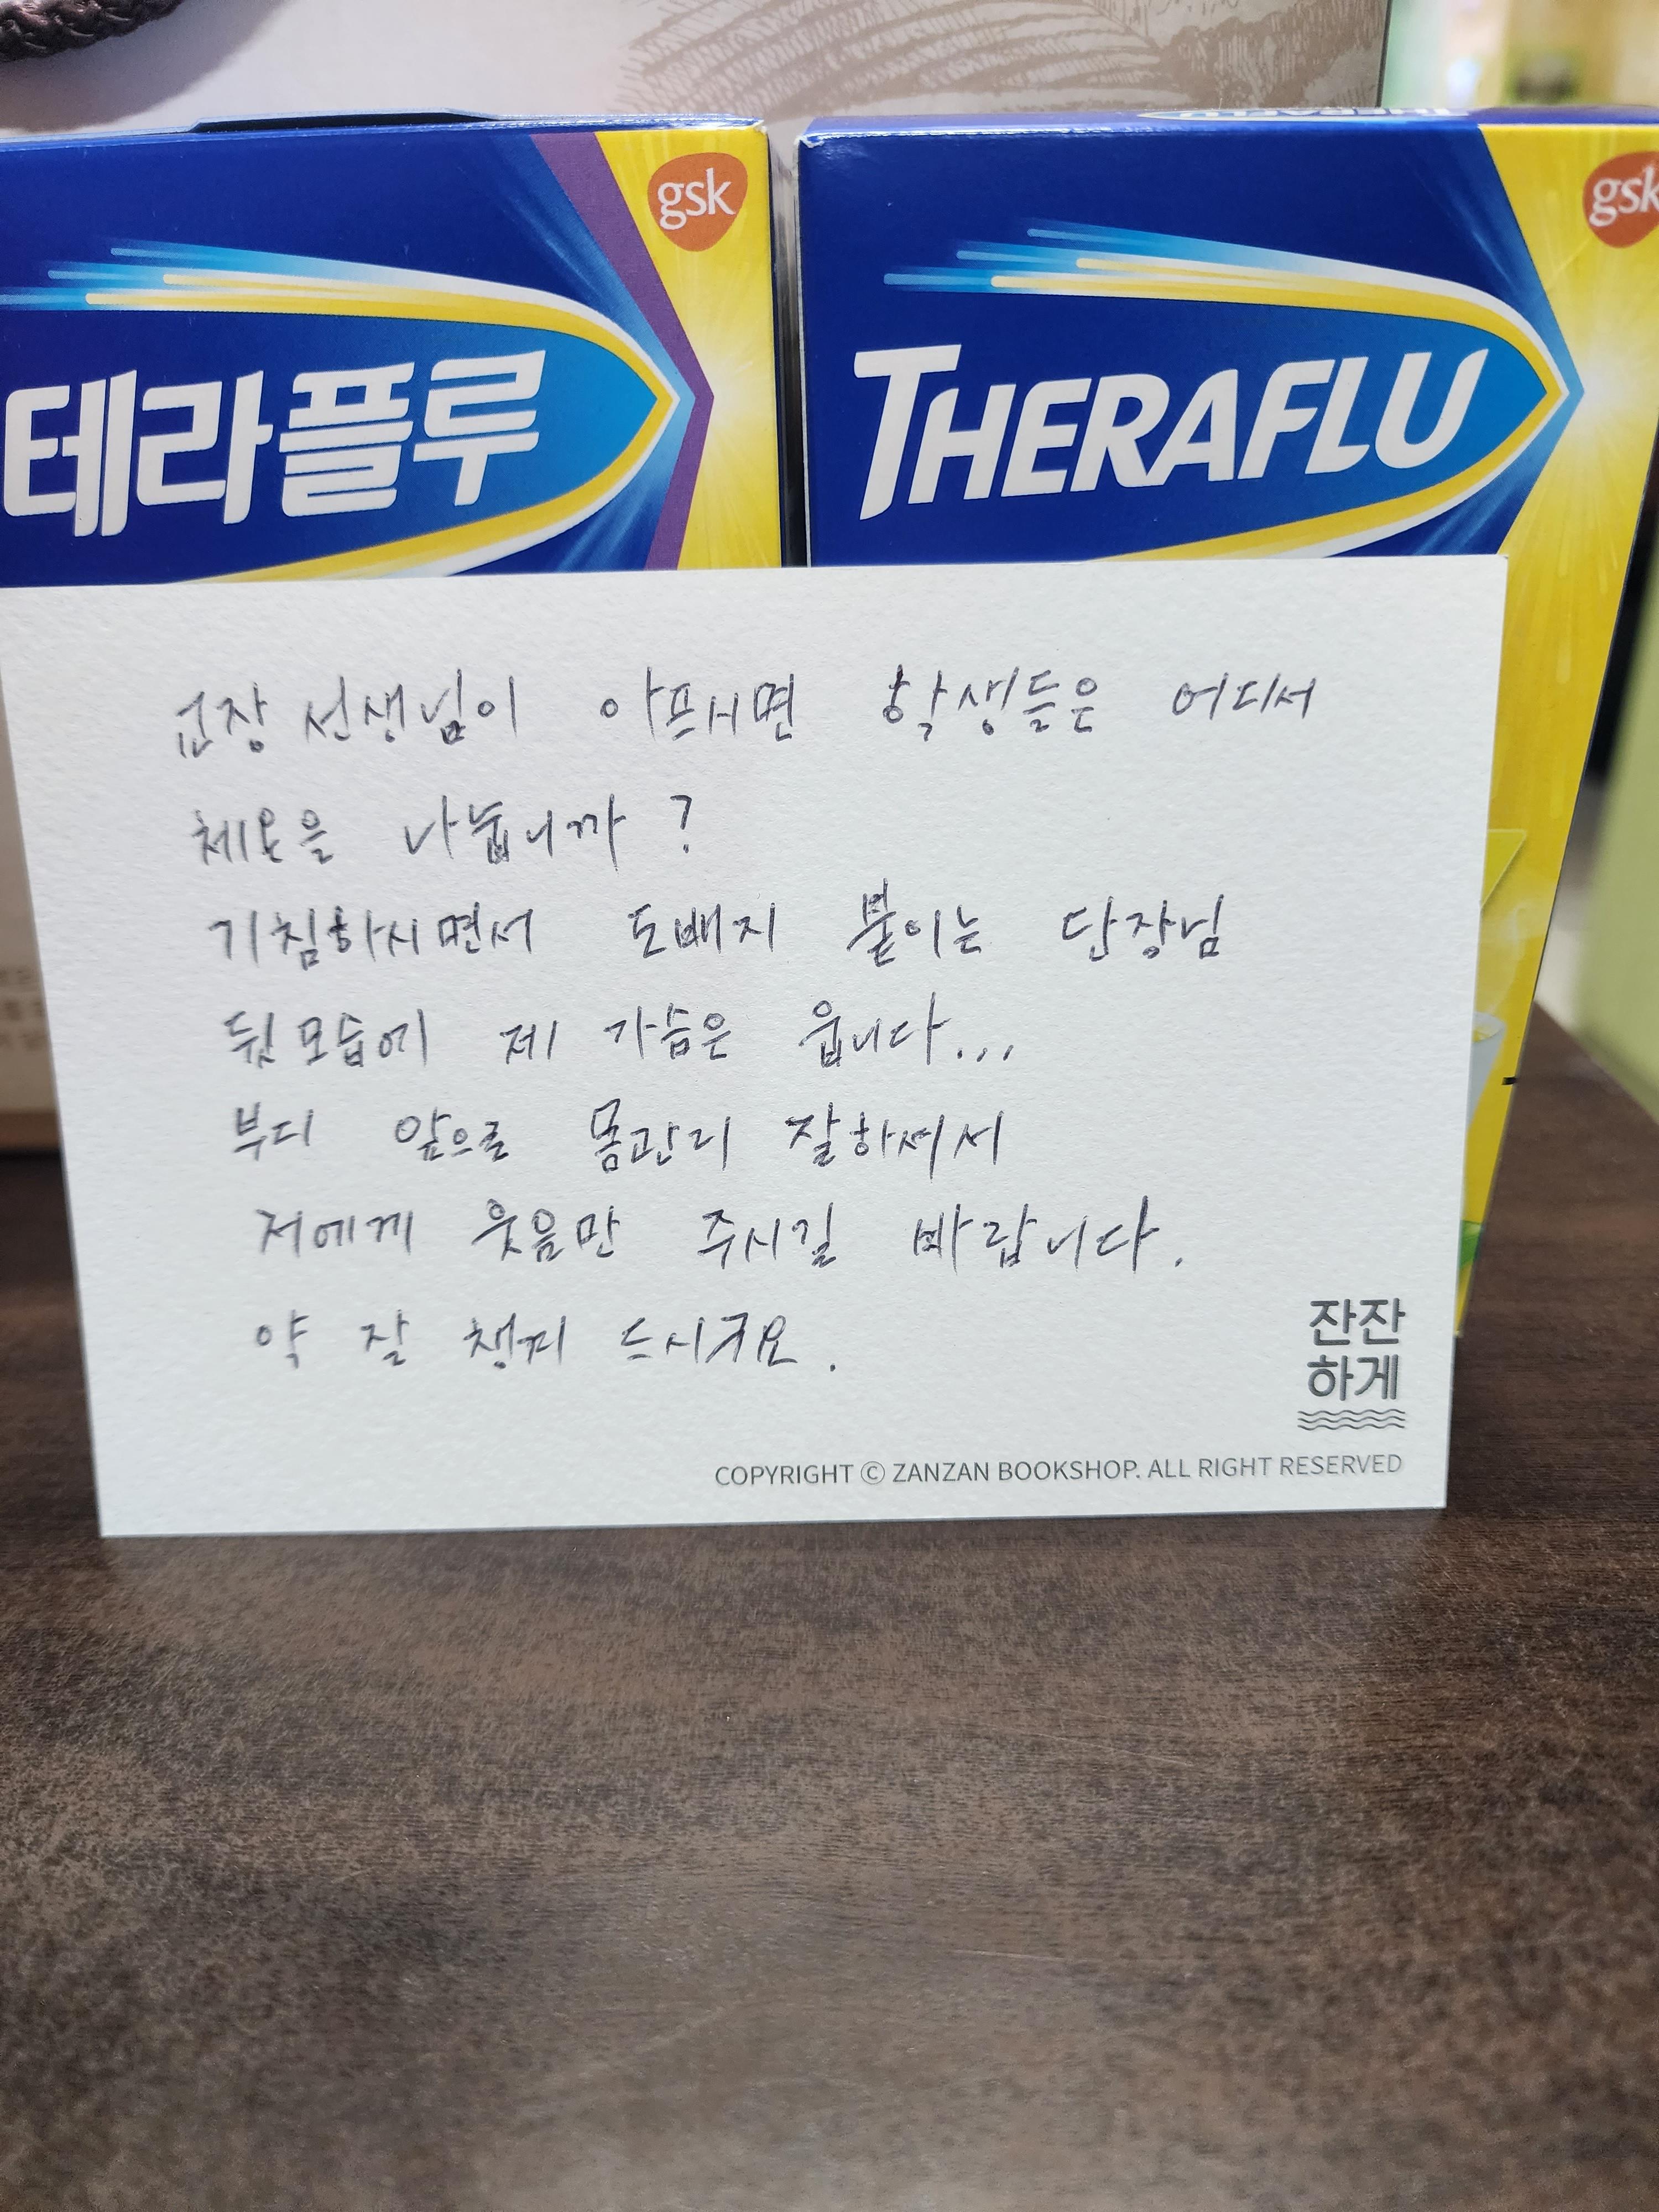 gsk
gsk
테라플루
THERAFLU
교장 선생님이 아프시면 학생들은 어디서
체온을 나눕니까?
기침하시면서 도배지 붙이는 단장님
뒷모습에 제 가슴은 웁니다...
부디 앞으로 몸관리 잘하셔서
저에게 웃음만 주시길 바랍니다.
약 잘 챙겨 드시구요.
잔잔
하게
COPYRIGHT © ZANZAN BOOKSHOP. ALL RIGHT RESERVED